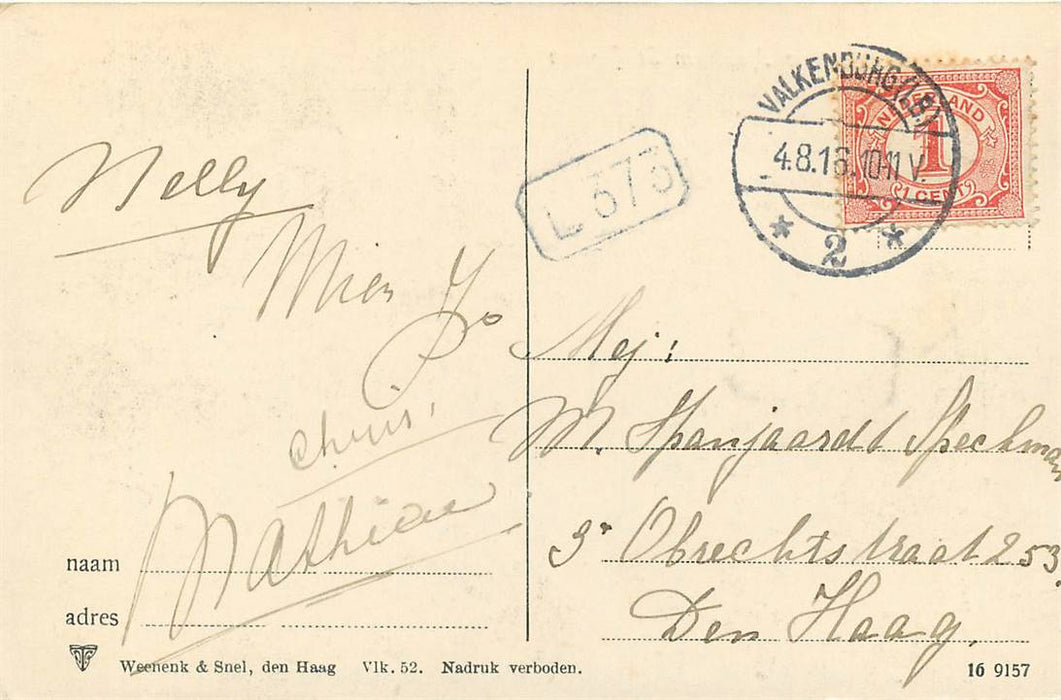 Nelly
Mien Jo
Chris,
Mathieu
naam
adres
Weenenk & Snel, den Haag Vlk. 52. Nadruk verboden.
L 373
VALKENBURG (LB)
4.8.16. 10-11 V.
* 2 *
NEDERLAND
1
1 CENT
Mej:
M. Spanjaardt Speelman
3r Obrechtstraat 253
Den Haag.
16 9157